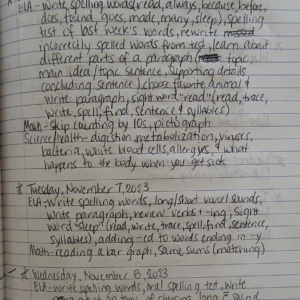 ELA - Write spelling words (read, always, because, before,
does, found, gives, made, many, sleep), spelling
test of last week's words, rewrite missed
incorrectly spelled words from test, learn about
different parts of a paragraph (topic,
main idea/topic sentence, supporting details
concluding sentence) choose favorite animal &
write paragraph, sight word "read" (read, trace,
write, spell, find, sentence & syllables)
Math - Skip counting by 10s, pictograph
Science/health - digestion, metabolization, viruses,
bacteria, white blood cells, allergies & what
happens to the body when you get sick
Tuesday, November 7, 2023
ELA - Write spelling words, long/short vowel sounds,
write paragraph, review verbs + -ing, sight
word "sleep" (read, write, trace, spell, find, sentence,
syllables), adding -ed to words ending in -y
Math - reading a bar graph, same sums (matching)
Wednesday, November 8, 2023
ELA - write spelling words, oral spelling test, write